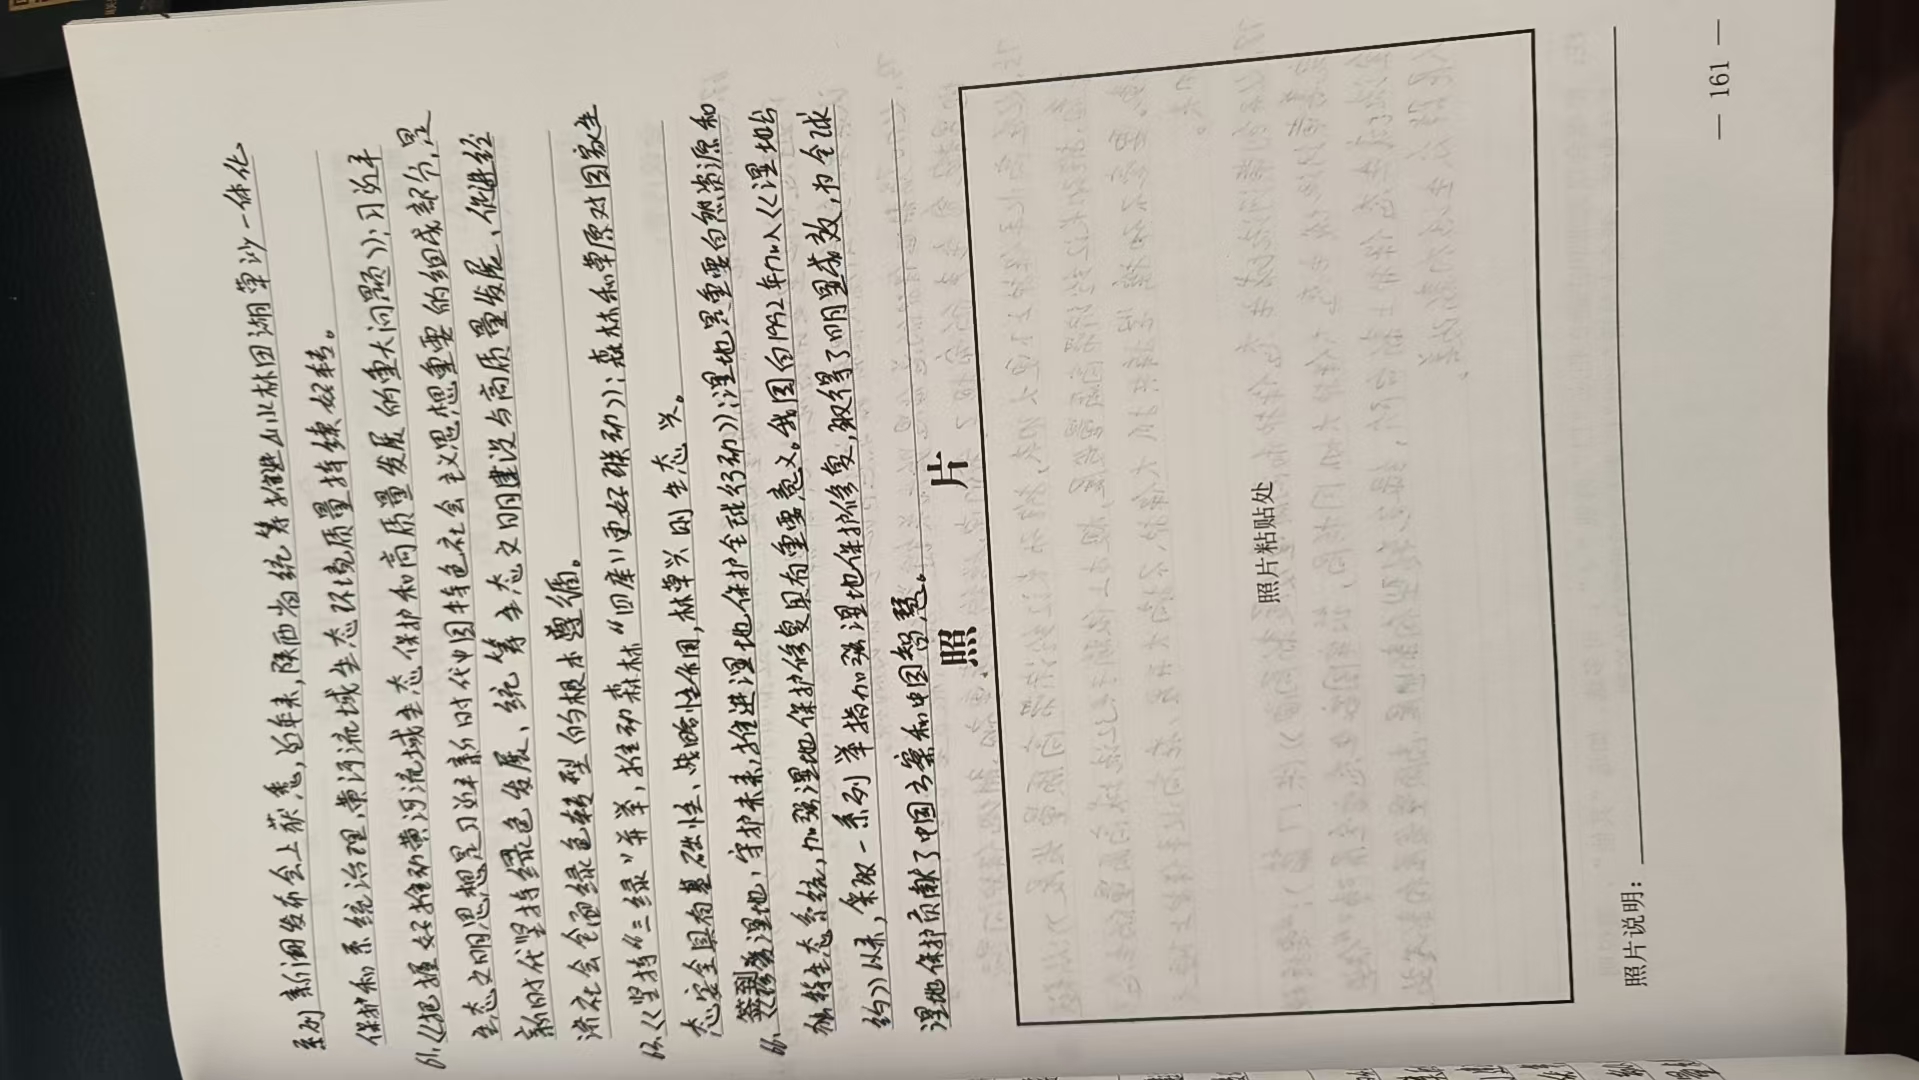 系列新闻发布会上获悉，近年来，陕西省统筹推进山水林田湖草沙一体化
保护和系统治理，黄河流域生态环境质量持续好转。
61.《把握好推动黄河流域生态保护和高质量发展的重大问题》：习近平
生态文明思想是习近平新时代中国特色社会主义思想重要的组成部分，是
新时代坚持绿色发展、统筹生态文明建设与高质量发展、促进经
济社会全面绿色转型的根本遵循。
《坚持“三绿”并举，推动森林“四库”更好联动》：森林和草原对国家生
态安全具有基础性、战略性作用，林草兴则生态兴。
66.《珍爱湿地，守护未来，推进湿地保护全球行动》：湿地是重要自然资源和
签到
独特生态系统，加强湿地保护修复具有重要意义。我国自1992年加入《湿地公
约》以来，采取一系列举措加强湿地保护修复，取得了明显成效，为全球
湿地保护贡献了中国方案和中国智慧。
照 片
照片粘贴处
照片说明：
— 161 —